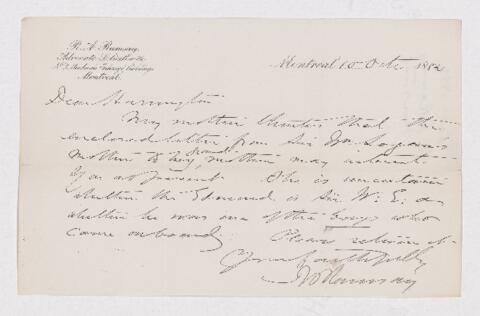 R. A. Ramsay,
Advocate
Montreal.
Montreal 10 Octr 1882
Dear Harrington
My mother thinks that the
enclosed letter from Sir Wm Logan's
mother to my grand mother may interest
you at present. She is uncertain
whether the Edmund is Sir W. E. or
whether he was one of the boys who
came on board. Please return it.
Yours faithfully
R A Ramsay